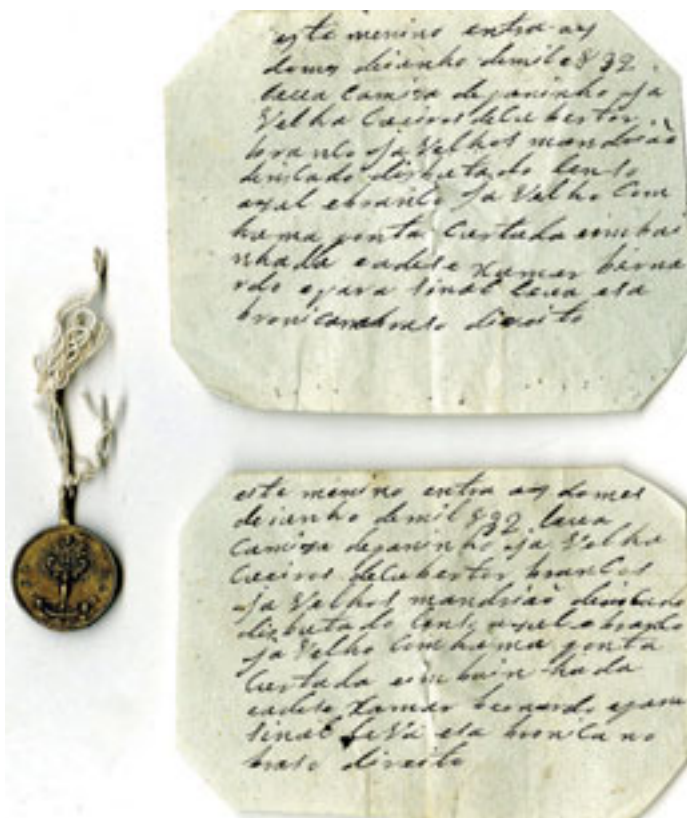 este menino entra aos
do mes de junho de mil e 832
leva camiza de paninho ja
velha Coeiros de Cubertor
branco ja velhos mandrião
desbotado lenso
azul e branco ja velho Com
huma ponta Cortada e imbai
nhada e adese xamar berna
rdo e para sinal leva esa
bronica no braso direito
este menino entra aos do mes
de junho de mil 832 leva
Camiza de paninho ja velha
Coeiros de Cubertor brancos
ja velhos mandrião
desbotado lenso azul e branco
ja velho Com huma ponta
Cortada e imbainhada
e adese xamar bernardo e para
sinal leva esa bronica no
braso direito